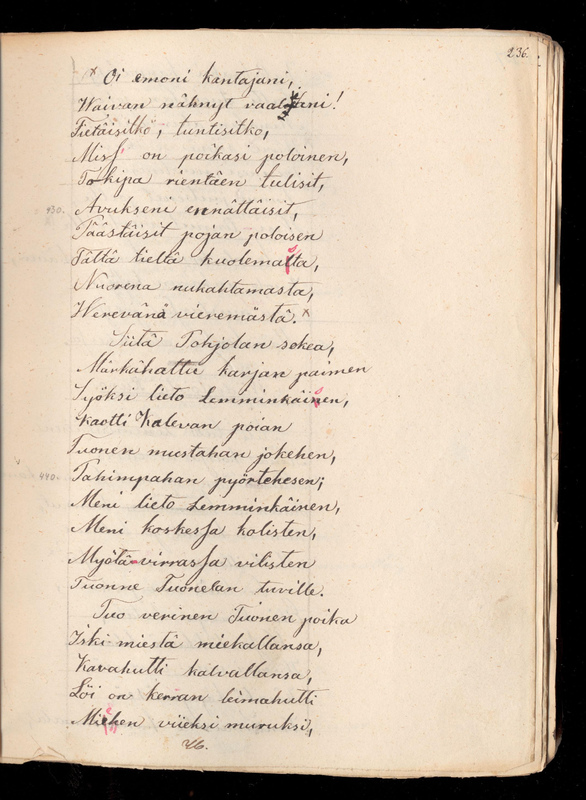 236.
× Oi emoni kantajani,
Waivan nähnyt vaalijani!
Tietäisitkö, tuntisitko,
Missä on poikasi poloinen,
Tokipa rientäen tulisit,
430. Avukseni ennättäisit,
Päästäisit pojan poloisen
Tältä tieltä kuolemasta,
Nuorena nukahtamasta,
Werevänä vieremästä. ×
Siitä Pohjolan sokea,
Märkähattu karjan paimen
Syöksi lieto Lemminkäisen,
Kaotti Kalevan poian
Tuonen mustahan jokehen,
440. Pahimpahan pyörtehesen;
Meni lieto Lemminkäinen,
Meni koskessa kolisten,
Myötä-virrassa vilisten
Tuonne Tuonelan tuville.
Tuo verinen Tuonen poika
Iski miestä miekallansa,
Kavahutti kalvallansa,
Löi on kerran leimahutti
Miehen viieksi muruksi,